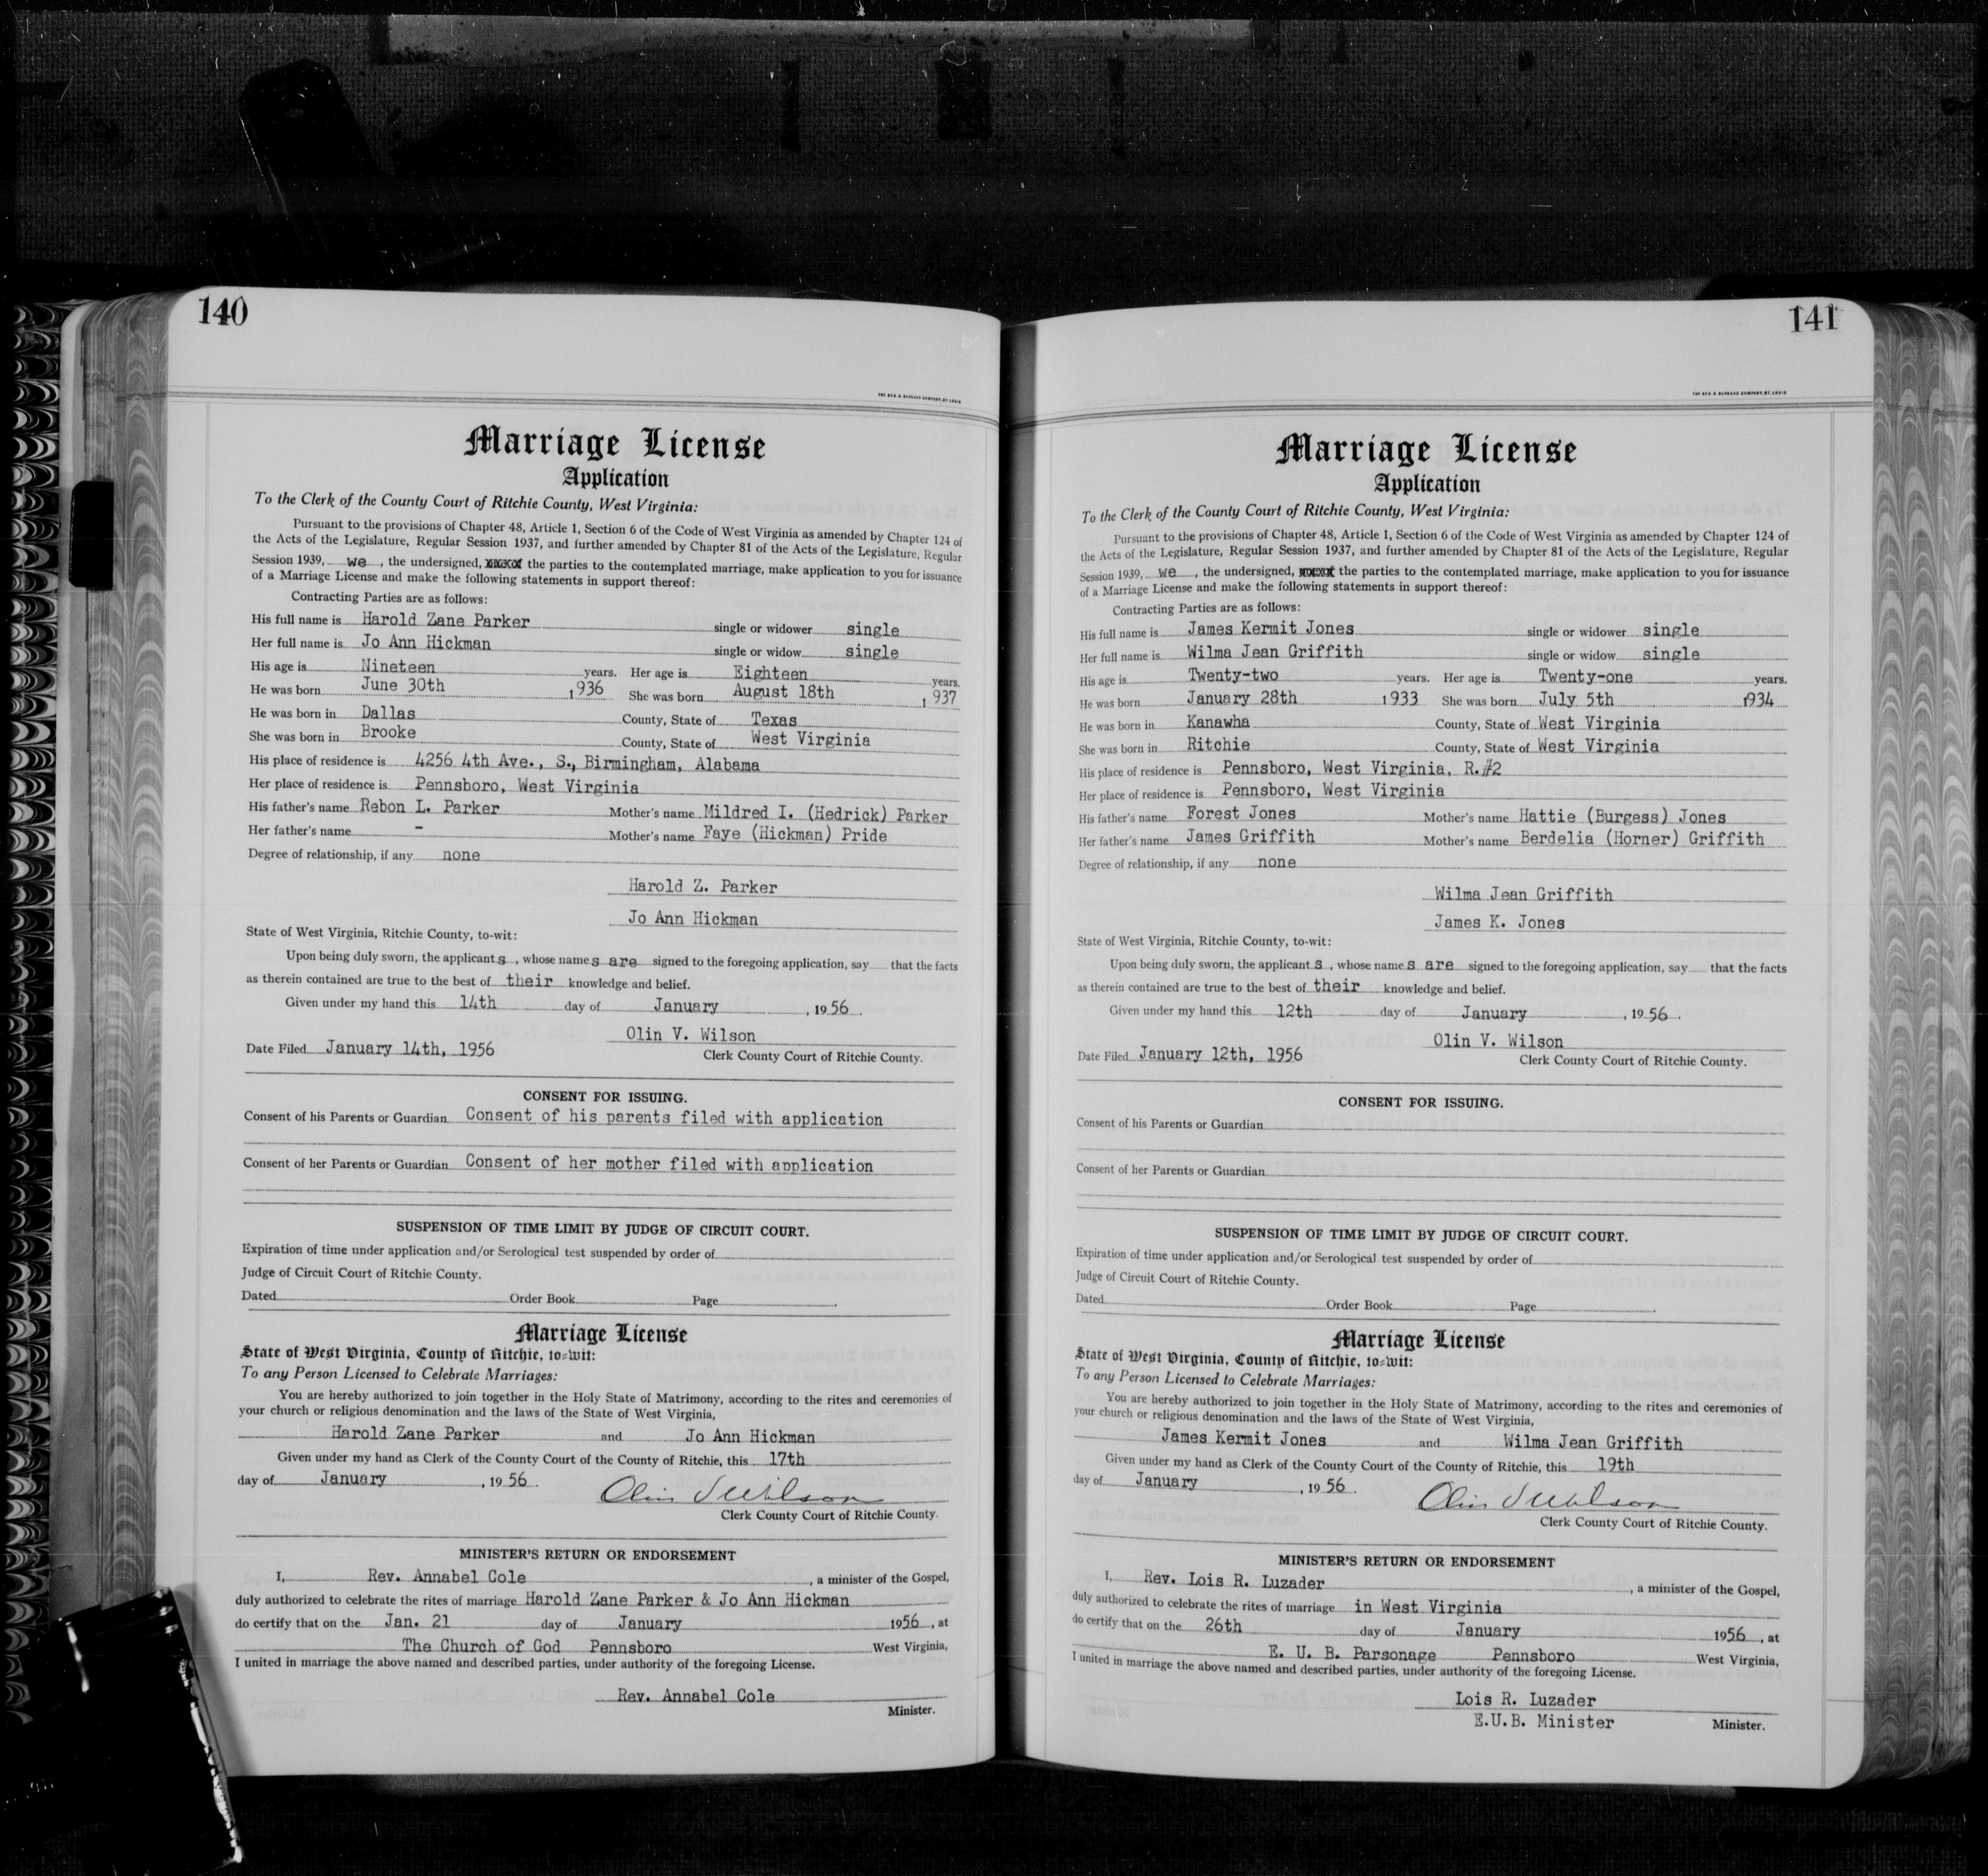 140
THE GEO. D. BARNARD COMPANY, ST. LOUIS
Marriage License
Application
To the Clerk of the County Court of Ritchie County, West Virginia:
Pursuant to the provisions of Chapter 48, Article 1, Section 6 of the Code of West Virginia as amended by Chapter 124 of
the Acts of the Legislature, Regular Session 1937, and further amended by Chapter 81 of the Acts of the Legislature, Regular
Session 1939, we, the undersigned, xxxxx the parties to the contemplated marriage, make application to you for issuance
of a Marriage License and make the following statements in support thereof:
Contracting Parties are as follows:
His full name is Harold Zane Parker single or widower single
Her full name is Jo Ann Hickman single or widow single
His age is Nineteen years. Her age is Eighteen years.
He was born June 30th 1936 She was born August 18th 1937
He was born in Dallas County, State of Texas
She was born in Brooke County, State of West Virginia
His place of residence is 4256 4th Ave., S., Birmingham, Alabama
Her place of residence is Pennsboro, West Virginia
His father's name Rebon L. Parker Mother's name Mildred I. (Hedrick) Parker
Her father's name - Mother's name Faye (Hickman) Pride
Degree of relationship, if any none
Harold Z. Parker
Jo Ann Hickman
State of West Virginia, Ritchie County, to-wit:
Upon being duly sworn, the applicants, whose names are signed to the foregoing application, say that the facts
as therein contained are true to the best of their knowledge and belief.
Given under my hand this 14th day of January, 1956.
Olin V. Wilson
Date Filed January 14th, 1956 Clerk County Court of Ritchie County.
CONSENT FOR ISSUING.
Consent of his Parents or Guardian Consent of his parents filed with application
Consent of her Parents or Guardian Consent of her mother filed with application
SUSPENSION OF TIME LIMIT BY JUDGE OF CIRCUIT COURT.
Expiration of time under application and/or Serological test suspended by order of
Judge of Circuit Court of Ritchie County.
Dated Order Book Page
Marriage License
State of West Virginia, County of Ritchie, to-wit:
To any Person Licensed to Celebrate Marriages:
You are hereby authorized to join together in the Holy State of Matrimony, according to the rites and ceremonies of
your church or religious denomination and the laws of the State of West Virginia,
Harold Zane Parker and Jo Ann Hickman
Given under my hand as Clerk of the County Court of the County of Ritchie, this 17th
day of January, 1956. Olin V Wilson
Clerk County Court of Ritchie County.
MINISTER'S RETURN OR ENDORSEMENT
I, Rev. Annabel Cole, a minister of the Gospel,
duly authorized to celebrate the rites of marriage Harold Zane Parker & Jo Ann Hickman
do certify that on the Jan. 21 day of January 1956, at
The Church of God Pennsboro West Virginia,
I united in marriage the above named and described parties, under authority of the foregoing License.
Rev. Annabel Cole
Minister.
141
THE GEO. D. BARNARD COMPANY, ST. LOUIS
Marriage License
Application
To the Clerk of the County Court of Ritchie County, West Virginia:
Pursuant to the provisions of Chapter 48, Article 1, Section 6 of the Code of West Virginia as amended by Chapter 124 of
the Acts of the Legislature, Regular Session 1937, and further amended by Chapter 81 of the Acts of the Legislature, Regular
Session 1939, we, the undersigned, xxxxx the parties to the contemplated marriage, make application to you for issuance
of a Marriage License and make the following statements in support thereof:
Contracting Parties are as follows:
His full name is James Kermit Jones single or widower single
Her full name is Wilma Jean Griffith single or widow single
His age is Twenty-two years. Her age is Twenty-one years.
He was born January 28th 1933 She was born July 5th 1934
He was born in Kanawha County, State of West Virginia
She was born in Ritchie County, State of West Virginia
His place of residence is Pennsboro, West Virginia, R.#2
Her place of residence is Pennsboro, West Virginia
His father's name Forest Jones Mother's name Hattie (Burgess) Jones
Her father's name James Griffith Mother's name Berdelia (Horner) Griffith
Degree of relationship, if any none
Wilma Jean Griffith
James K. Jones
State of West Virginia, Ritchie County, to-wit:
Upon being duly sworn, the applicants, whose names are signed to the foregoing application, say that the facts
as therein contained are true to the best of their knowledge and belief.
Given under my hand this 12th day of January, 1956.
Olin V. Wilson
Date Filed January 12th, 1956 Clerk County Court of Ritchie County.
CONSENT FOR ISSUING.
Consent of his Parents or Guardian
Consent of her Parents or Guardian
SUSPENSION OF TIME LIMIT BY JUDGE OF CIRCUIT COURT.
Expiration of time under application and/or Serological test suspended by order of
Judge of Circuit Court of Ritchie County.
Dated Order Book Page
Marriage License
State of West Virginia, County of Ritchie, to-wit:
To any Person Licensed to Celebrate Marriages:
You are hereby authorized to join together in the Holy State of Matrimony, according to the rites and ceremonies of
your church or religious denomination and the laws of the State of West Virginia,
James Kermit Jones and Wilma Jean Griffith
Given under my hand as Clerk of the County Court of the County of Ritchie, this 19th
day of January, 1956. Olin V Wilson
Clerk County Court of Ritchie County.
MINISTER'S RETURN OR ENDORSEMENT
I, Rev. Lois R. Luzader, a minister of the Gospel,
duly authorized to celebrate the rites of marriage in West Virginia
do certify that on the 26th day of January 1956, at
E. U. B. Parsonage Pennsboro West Virginia,
I united in marriage the above named and described parties, under authority of the foregoing License.
Lois R. Luzader
E.U.B. Minister Minister.